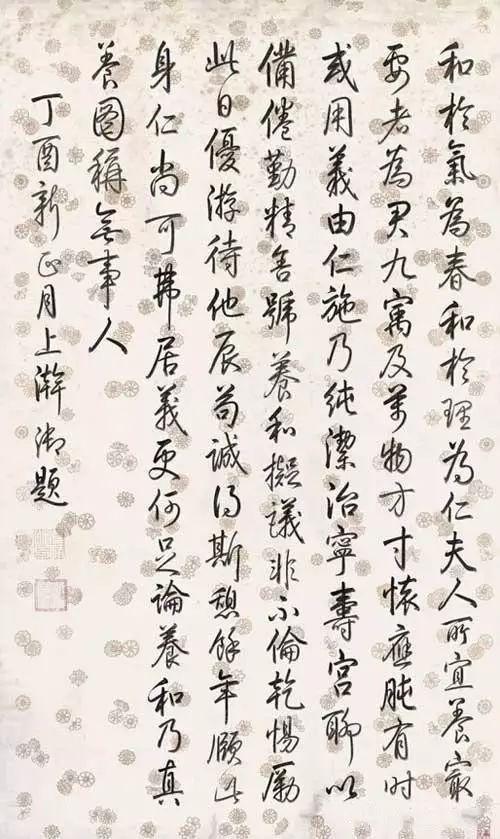 和於氣為春和於理為仁夫人所宜養最
要者為君九寓及萬物方寸懷應肫有时
或用義由仁施乃純潔治寧壽宮聊以
備倦勤精舍號養和擬議非不倫乾惕勵
此日優游待他辰苟誠得斯憩餘年頤此
身仁尚可弗居義更何足論養和乃真
養圖稱無事人
丁酉新正月上澣御題